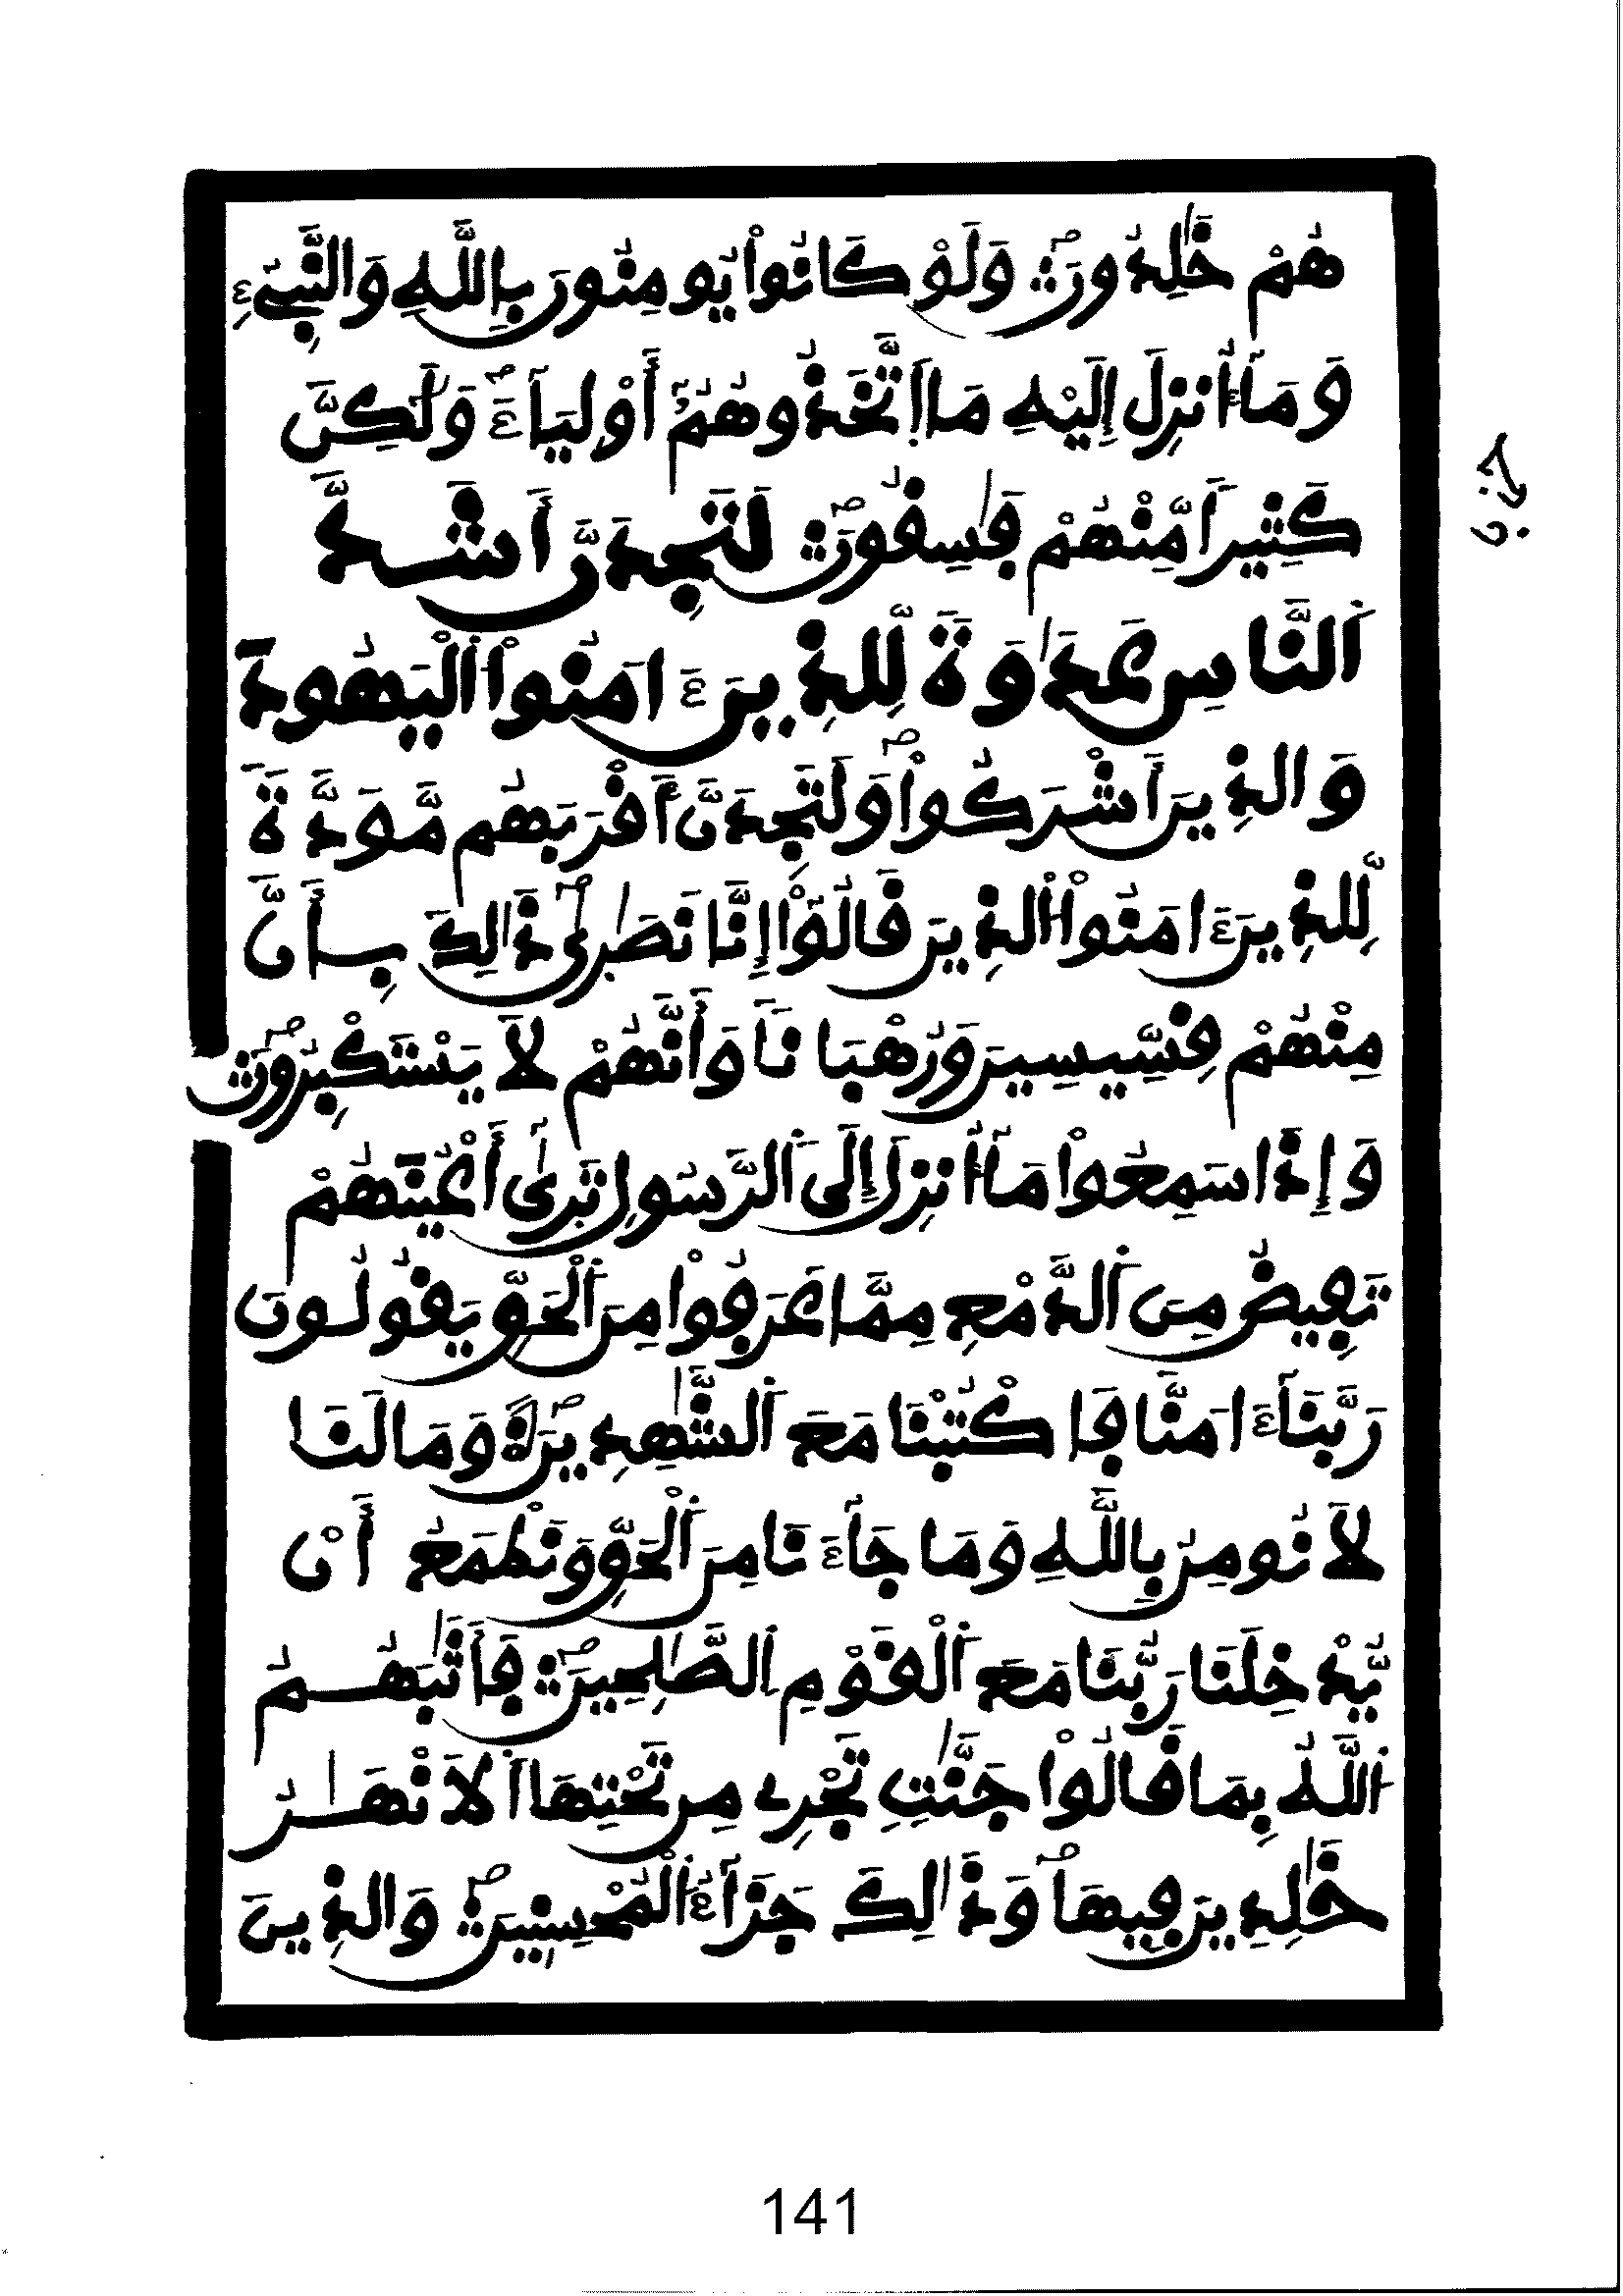 هُمْ خَٰلِدُونَ وَلَوْ كَانُواْ يُومِنُونَ بِاللَّهِ وَالنَّبِےٓءِ
وَمَآ أُنزِلَ إِلَيْهِ مَا اَتَّخَذُوهُمُۥٓ أَوْلِيَآءَ وَلَٰكِنَّ
كَثِيراً مِّنْهُمْ فَٰسِقُونَ لَتَجِدَنَّ أَشَدَّ
اَلنَّاسِ عَدَٰوَةً لِّلذِينَ ءَامَنُواْ اَلْيَهُودَ
وَالذِينَ أَشْرَكُواْ وَلَتَجِدَنَّ أَقْرَبَهُم مَّوَدَّةً
لِّلذِينَ ءَامَنُواْ اُلذِينَ قَالُوٓاْ إِنَّا نَصَٰرَىٰ ذَٰلِكَ بِأَنَّ
مِنْهُمْ قِسِّيسِينَ وَرُهْبَاناً وَأَنَّهُمْ لَا يَسْتَكْبِرُونَ
وَإِذَا سَمِعُواْ مَآ أُنزِلَ إِلَى اَلرَّسُولِ تَرَىٰٓ أَعْيُنَهُمْ
تَفِيضُ مِنَ اَلدَّمْعِ مِمَّا عَرَفُواْ مِنَ اَلْحَقِّ يَقُولُونَ
رَبَّنَآ ءَامَنَّا فَاكْتُبْنَا مَعَ اَلشَّٰهِدِينَ وَمَا لَنَا
لَا نُومِنُ بِاللَّهِ وَمَا جَآءَنَا مِنَ اَلْحَقِّ وَنَطْمَعُ أَنْ
يُّدْخِلَنَا رَبُّنَا مَعَ اَلْقَوْمِ اِلصَّٰلِحِينَ فَأَثَٰبَهُمُ
اُللَّهُ بِمَا قَالُواْ جَنَّٰتٍ تَجْرِے مِن تَحْتِهَا اَلَانْهَٰرُ
خَٰلِدِينَ فِيهَا وَذَٰلِكَ جَزَآءُ اُلْمُحْسِنِينَ وَالذِينَ
141